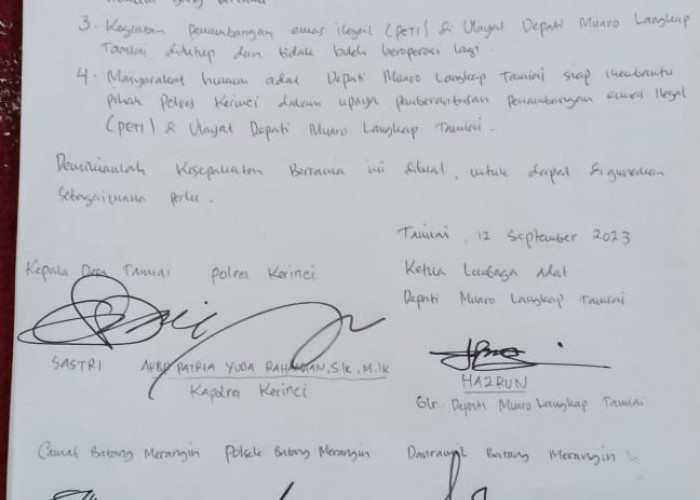 3. Kegiatan penambangan emas ilegal (PETI) di Ulayat Depati Muaro Langkap
Tamiai ditutup dan tidak boleh beroperasi lagi.
4. Masyarakat hukum adat Depati Muaro Langkap Tamiai siap membantu
pihak Polres Kerinci dalam upaya pemberantasan Penambangan emas ilegal
(PETI) di Ulayat Depati Muaro Langkap Tamiai.
Demikianlah Kesepakatan Bersama ini dibuat, untuk dapat digunakan
sebagaimana perlu.
Tamiai, 12 September 2023
Kepala Desa Tamiai Polres Kerinci Ketua Lembaga adat
Depati Muaro Langkap Tamiai
SASTRI AKBP PATRIA YUDA RAHADIAN, S.Ik, M.Ik HAZRUN
Kapolres Kerinci Glr. Depati Muaro Langkap Tamiai
Camat Batang Merangin Polsek Batang Merangin Danramil Batang Merangin